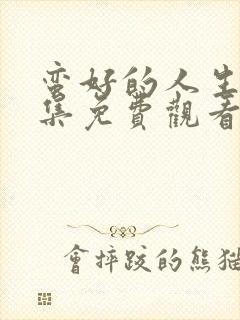 蛮好的人生
集免費觀看
會摔跤的熊猫